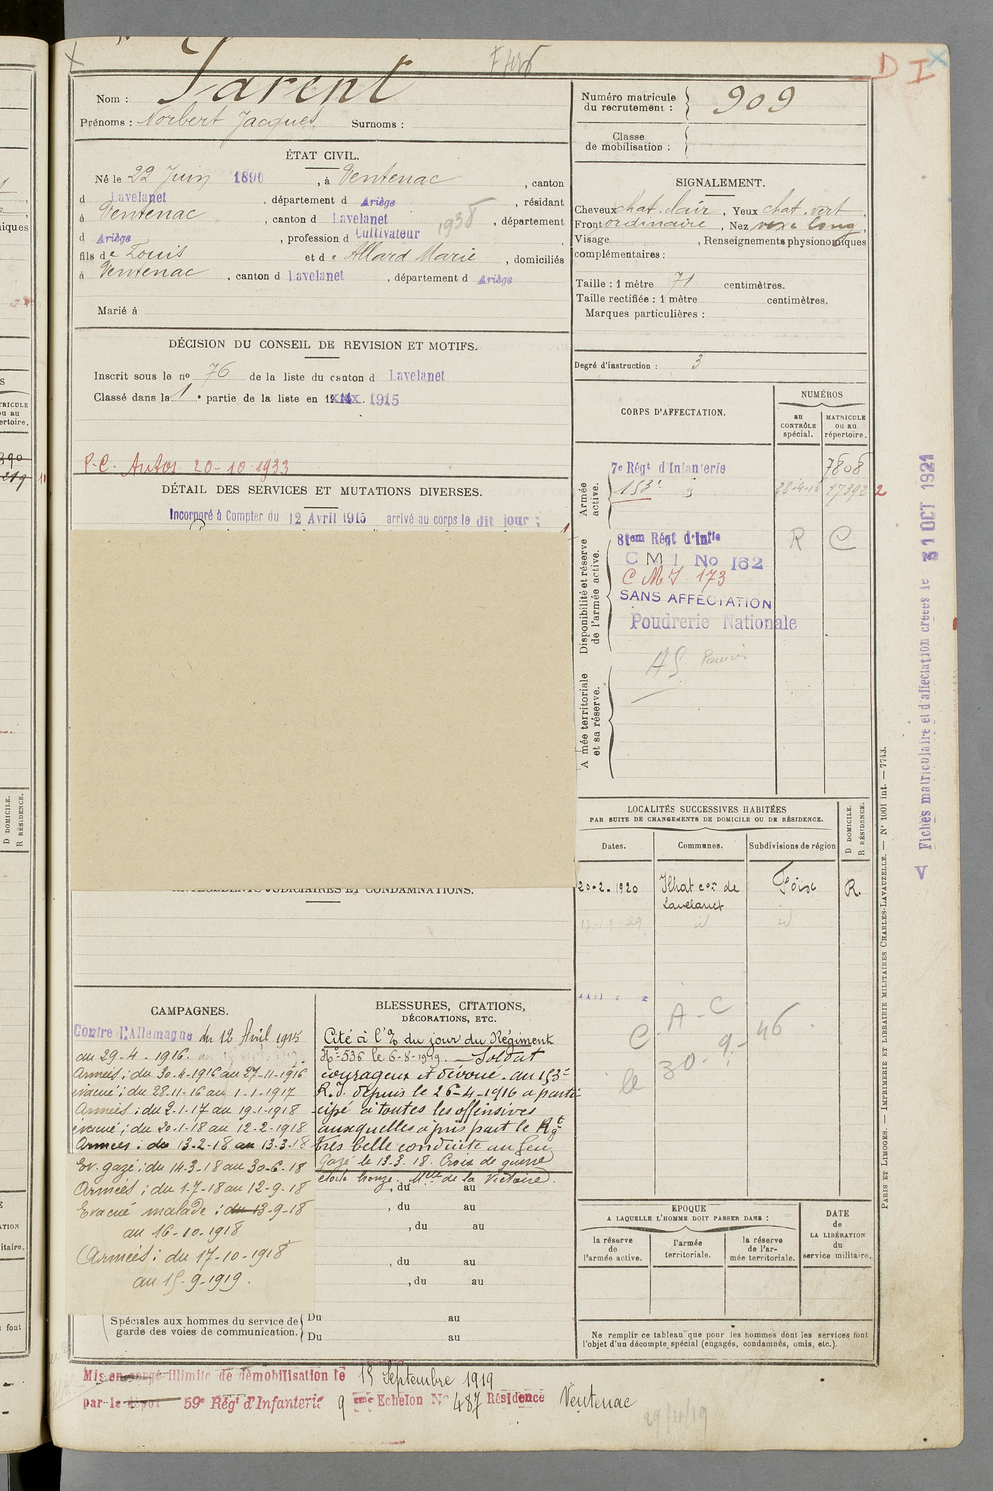 Nom : Parent
Prénoms : Norbert Jacques Surnoms :
Numéro matricule du recrutement : 909
Classe de mobilisation :
D I
ÉTAT CIVIL.
Né le 22 Juin 1896, à Ventenac, canton
d Lavelanet, département d Ariège, résidant
à Ventenac, canton d Lavelanet 1938, département
d Ariège, profession d Cultivateur
fils de Louis et de Allard Marie, domiciliés
à Ventenac, canton d Lavelanet, département d Ariège
Marié à
SIGNALEMENT.
Cheveux chat. clair, Yeux chat. vert,
Front ordinaire, Nez long,
Visage , Renseignements physionomiques
complémentaires :
Taille : 1 mètre 71 centimètres.
Taille rectifiée : 1 mètre centimètres.
Marques particulières :
Degré d'instruction : 3
DÉCISION DU CONSEIL DE REVISION ET MOTIFS.
Inscrit sous le nº 76 de la liste du canton d Lavelanet
Classé dans la 1e partie de la liste en 1915
P.C. Autos 20-10-1933
DÉTAIL DES SERVICES ET MUTATIONS DIVERSES.
Incorporé à Compter du 12 Avril 1915 arrivé au corps le dit jour ;
CORPS D'AFFECTATION.
NUMÉROS
au CONTRÔLE spécial.
MATRICULE OU AU répertoire.
Armée active.
7e Régt d'Infanterie 7808
153e 28-4-16 17392
Disponibilité et réserve de l'armée active.
81em Régt d'Infie R C
C M I No 162
C M I 173
SANS AFFECTATION
Poudrerie Nationale
AS Pamiers
Armée territoriale et sa réserve.
Fiches matriculaire et d'affectation créées le 31 OCT 1921
LOCALITÉS SUCCESSIVES HABITÉES
PAR SUITE DE CHANGEMENTS DE DOMICILE OU DE RÉSIDENCE.
D DOMICILE. R RÉSIDENCE.
Dates. Communes. Subdivisions de région
20-2-1920 Ilhat con de Lavelanet Foix R
id id
A-C
C
le 30-9-46
ANTÉCÉDENTS JUDICIAIRES ET CONDAMNATIONS.
CAMPAGNES.
Contre l'Allemagne du 12 Avril 1915
au 29-4-1916.
Armées : du 30-4-1916 au 27-11-1916
évacué : du 28-11-16 au 1-1-1917
Armées : du 2-1-17 au 19-1-1918
évacué : du 20-1-18 au 12-2-1918
Armées : du 13-2-18 au 13-3-18
Ev. gazé : du 14-3-18 au 30-6-18
Armées : du 1-7-18 au 12-9-18
Evacué malade : du 13-9-18
au 16-10-1918
Armées : du 17-10-1918
au 15-9-1919.
BLESSURES, CITATIONS,
DÉCORATIONS, ETC.
Cité à l'O/ du jour du Régiment
Nº 536 le 6-8-1919. Soldat
courageux et dévoué. au 153e
R.I. depuis le 26-4-1916 a parti-
cipé à toutes les offensives
auxquelles a pris part le Rgt
très belle conduite au feu
Gazé le 13.3.18. Croix de guerre
étoile bronze. Mlle de la Victoire.
, du au
, du au
, du au
, du au
, du au
Spéciales aux hommes du service de garde des voies de communication.
Du au
Du au
EPOQUE
A LAQUELLE L'HOMME DOIT PASSER DANS :
la réserve de l'armée active.
l'armée territoriale.
la réserve de l'armée territoriale.
DATE de LA LIBÉRATION du service militaire.
Ne remplir ce tableau que pour les hommes dont les services font
l'objet d'un décompte spécial (engagés, condamnés, omis, etc.).
PARIS ET LIMOGES. — IMPRIMERIE ET LIBRAIRIE MILITAIRES CHARLES-LAVAUZELLE. — Nº 1001 int. — 7743.
Mis en congé illimité de démobilisation le 15 Septembre 1919
par le dépôt 59e Régt d'Infanterie 9 eme Echelon Nº 487 Résidence Ventenac